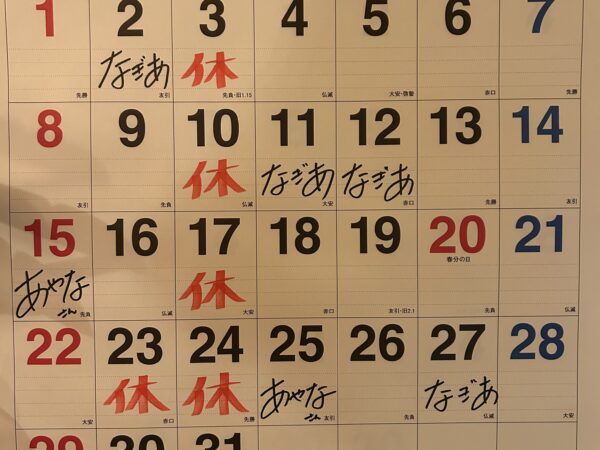 1 2 3 4 5 6 7
なぎあ 休
先勝 友引 先負・旧1.15 仏滅 大安・啓蟄 赤口 先勝
8 9 10 11 12 13 14
休 なぎあ なぎあ
友引 先負 仏滅 大安 赤口 先勝 友引
15 16 17 18 19 20 21
春分の日
あやな 休
さん 先負 仏滅 大安 赤口 友引・旧2.1 先負 仏滅
22 23 24 25 26 27 28
休 休 あやな なぎあ
さん
大安 赤口 先勝 友引 先負 仏滅 大安
29 30 31